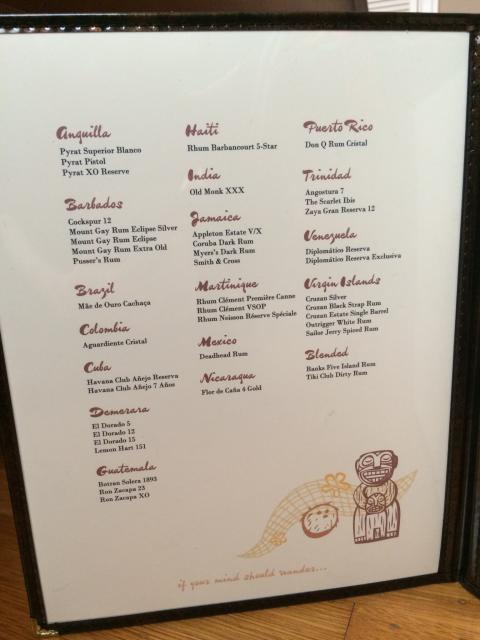 Anguilla
Pyrat Superior Blanco
Pyrat Pistol
Pyrat XO Reserve
Barbados
Cockspur 12
Mount Gay Rum Eclipse Silver
Mount Gay Rum Eclipse
Mount Gay Rum Extra Old
Pusser's Rum
Brazil
Mãe de Ouro Cachaça
Colombia
Aguardiente Cristal
Cuba
Havana Club Añejo Reserva
Havana Club Añejo 7 Años
Demerara
El Dorado 5
El Dorado 12
El Dorado 15
Lemon Hart 151
Guatemala
Botran Solera 1893
Ron Zacapa 23
Ron Zacapa XO
Haiti
Rhum Barbancourt 5-Star
India
Old Monk XXX
Jamaica
Appleton Estate V/X
Coruba Dark Rum
Myers's Dark Rum
Smith & Cross
Martinique
Rhum Clément Première Canne
Rhum Clément VSOP
Rhum Neisson Réserve Spéciale
Mexico
Deadhead Rum
Nicaragua
Flor de Caña 4 Gold
Puerto Rico
Don Q Rum Cristal
Trinidad
Angostura 7
The Scarlet Ibis
Zaya Gran Reserva 12
Venezuela
Diplomático Reserva
Diplomático Reserva Exclusiva
Virgin Islands
Cruzan Silver
Cruzan Black Strap Rum
Cruzan Estate Single Barrel
Ostrigger White Rum
Sailor Jerry Spiced Rum
Blended
Banks Five Island Rum
Tiki Club Dirty Rum
if your mind should wander...